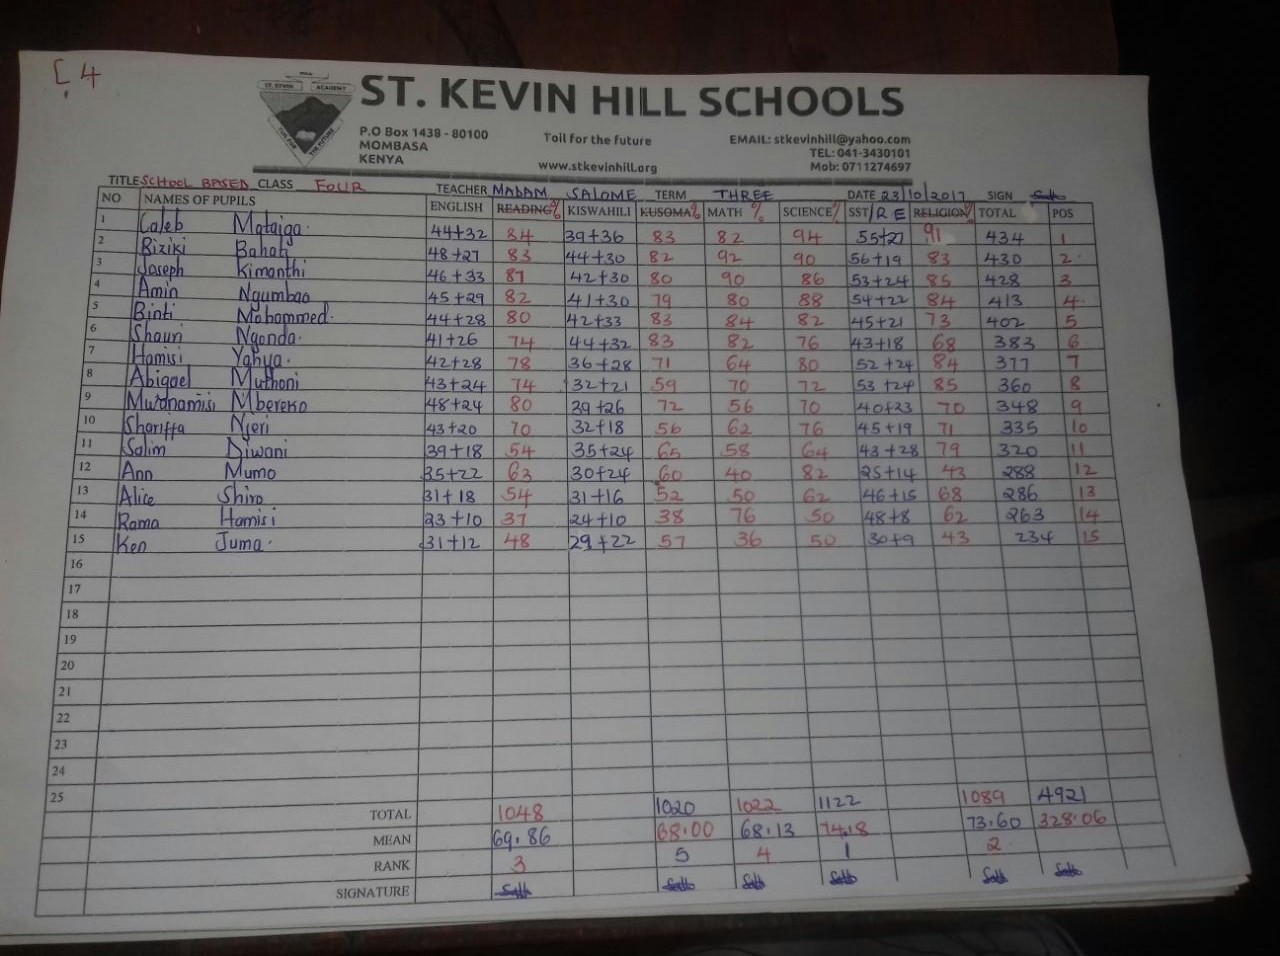 [ 4
ST. KEVIN ACADEMY
TOIL FOR THE FUTURE
ST. KEVIN HILL SCHOOLS
P.O Box 1438 - 80100 Toil for the future EMAIL: stkevinhill@yahoo.com
MOMBASA TEL: 041-3430101
KENYA www.stkevinhill.org Mob: 0711274697
TITLE SCHOOL BASED CLASS FOUR TEACHER MADAM SALOME TERM THREE DATE 23/10/2017 SIGN
NO NAMES OF PUPILS ENGLISH READING % KISWAHILI KUSOMA % MATH % SCIENCE % SST/R E RELIGION % TOTAL POS
1 Caleb Mataiga 44+32 84 39+36 83 82 94 55+27 91 434 1
2 Riziki Bahati 48+27 83 44+30 82 92 90 56+19 83 430 2
3 Joseph Kimanthi 46+33 87 42+30 80 90 86 53+24 85 428 3
4 Amin Ngumbao 45+29 82 41+30 79 80 88 54+22 84 413 4
5 Binti Mohammed 44+28 80 42+33 83 84 82 45+21 73 402 5
6 Shauri Ngonda 41+26 74 44+32 83 82 76 43+18 68 383 6
7 Hamisi Yahya 42+28 78 36+28 71 64 80 52+24 84 377 7
8 Abigael Muthoni 43+24 74 32+21 59 70 72 53+24 85 360 8
9 Mwanamisi Mbereko 48+24 80 39+26 72 56 70 40+23 70 348 9
10 Shariffa Njeri 43+20 70 32+18 56 62 76 45+19 71 335 10
11 Salim Diwani 39+18 54 35+24 65 58 64 43+28 79 320 11
12 Ann Mumo 35+22 63 30+24 60 40 82 25+14 43 288 12
13 Alice Shiro 31+18 54 31+16 52 50 62 46+15 68 286 13
14 Rama Hamisi 23+10 37 24+10 38 76 50 48+8 62 263 14
15 Ken Juma 31+12 48 29+22 57 36 50 30+9 43 234 15
16
17
18
19
20
21
22
23
24
25
TOTAL 1048 1020 1022 1122 1089 4921
MEAN 69.86 68.00 68.13 74.18 73.60 328.06
RANK 3 5 4 1 2
SIGNATURE